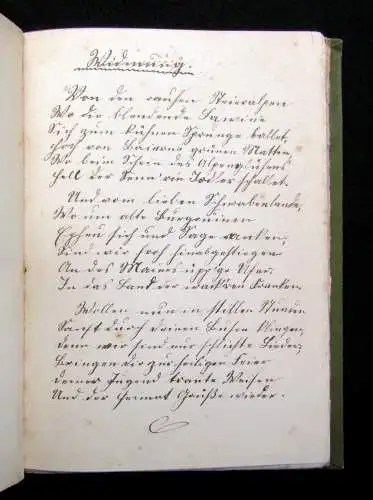 Widmung.
Von den rauhen Steieralpen
Wo die blendende Lawine
Sich zum kühnen Sprunge ballet,
Hoch von Baierns grünen Matten,
Wo beim Schein des Alpenglühens
Hell der Sennrin Jodler schallet.
Und vom lieben Schwabenlande,
Wo um alte Burgruinen
Epheu sich und Sage ranken,
Sind wir froh hinabgestiegen
An des Maines üpp'ge Ufer
In das Land der wackren Franken.
Wollen nun in stillen Stunden
Sanft durch deinen Busen klingen,
Denn wir sind nur schlichte Lieder,
Bringen dir zur heiligen Feier
Deiner Jugend traute Weisen
Und der Heimat Grüße wieder.